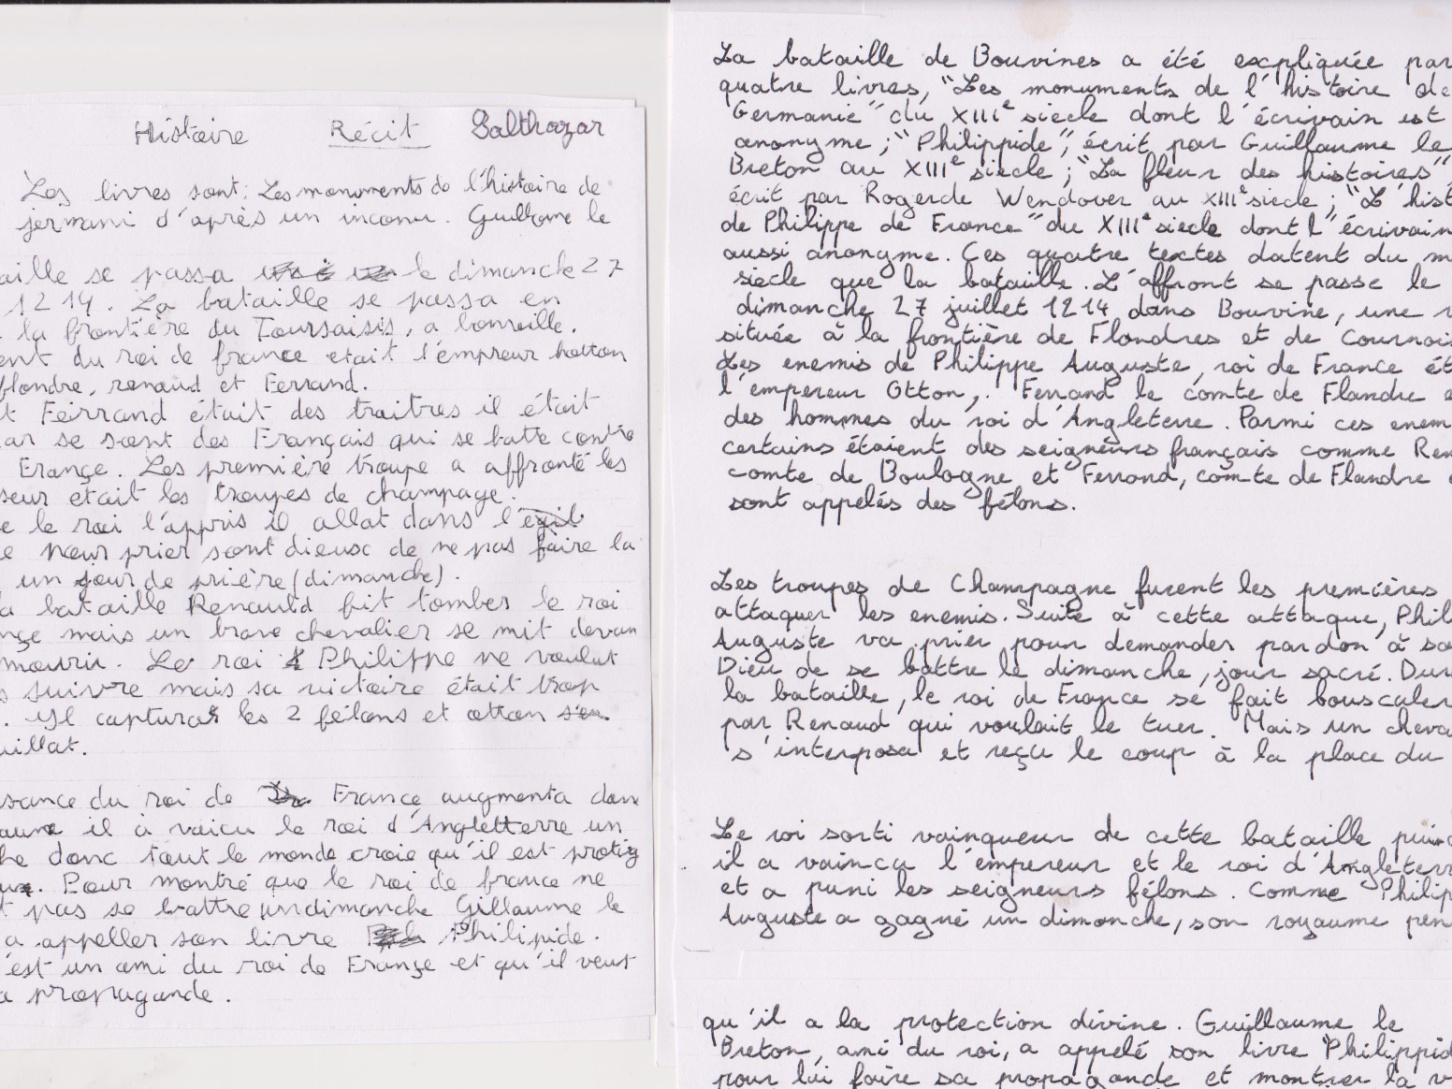 Histoire Récit Balthazar
Les livres sont: Les monuments de l'histoire de
germani d'après un inconu. Guillome le
aille se passa le dimanche 27
1214. La bataille se passa en
la frontière du Toursaisis, a
ent du roi de france etait l'empreur hotton
flandre, renaud et Ferrand.
t Feirrand était des traitres il était
ar se sont des Français qui se batte contre
Françe. Les première troupe a affronté les
seur etait les troupes de champage.
e le roi l'appris il allat dans l'
e prier sont dieux de ne pas faire la
un jour de prière (dimanche).
a bataille Renauld fit tomber le roi
nçe mais un brave chevalier se mit devan
mourir. Le roi Philippe ne voulut
s suivre mais sa victoire était trop
. Il captura les 2 félons et otton
uillat.
ssance du roi de France augmenta dans
il à vaicu le roi d'Angletterre un
he donc tout le monde croie qu'il est protég
. Pour montré que le roi de france ne
t pas se battre un dimanche Gillaume le
a appeller son livre Philipide.
'est un ami du roi de Françe et qu'il veut
a propagande.
La bataille de Bouvines a été expliquée par
quatre livres, "Les monuments de l'histoire de
Germanie" du XIIIe siècle dont l'écrivain est
anonyme ; "Philippide", écrit par Guillaume le
Breton au XIIIe siècle ; "La fleur des histoires"
écrit par Rogerde Wendover au XIIIe siecle ; "L'hist
de Philippe de France" du XIIIe siecle dont l'écrivain
aussi anonyme. Ces quatre textes datent du m
siecle que la bataille. L'affront se passe le
dimanche 27 juillet 1214 dans Bouvine, une
située à la frontière de Flandres et de Cournoi
Les enemis de Philippe Auguste, roi de France ét
l'empereur Otton,. Ferrand le comte de Flandre e
des hommes du roi d'Angleterre. Parmi ces enem
certains étaient des seigneurs français comme Ren
comte de Boulogne et Ferrand, comte de Flandre
sont appelés des félons.
Les troupes de Champagne furent les premières
attaquer les enemis. Suite à cette attaque, Phil
Auguste va prier pour demander pardon à so
Dieu de se battre le dimanche, jour sacré. Dur
la bataille, le roi de France se fait bousculer
par Renaud qui voulait le tuer. Mais un cheva
s'interposa et reçu le coup à la place du
Le roi sorti vainqueur de cette bataille puis
il a vaincu l'empereur et le roi d'Angleterr
et a puni les seigneurs félons. Comme Philip
Auguste a gagné un dimanche, son royaume pen
qu'il a la protection divine. Guillaume le
Breton, ami du roi, a appelé son livre Philippid
pour lui faire sa propagande et montrer la